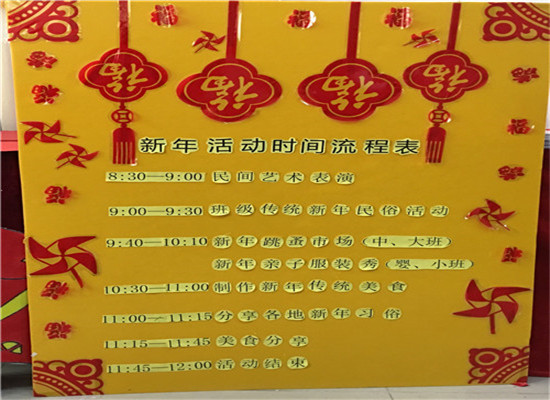 福 福 福 福
新年活动时间流程表
8:30—9:00 民间艺术表演
9:00—9:30 班级传统新年民俗活动
9:40—10:10 新年跳蚤市场(中、大班)
新年亲子服装秀(婴、小班)
10:30—11:00 制作新年传统美食
11:00—11:15 分享各地新年习俗
11:15—11:45 美食分享
11:45—12:00 活动结束